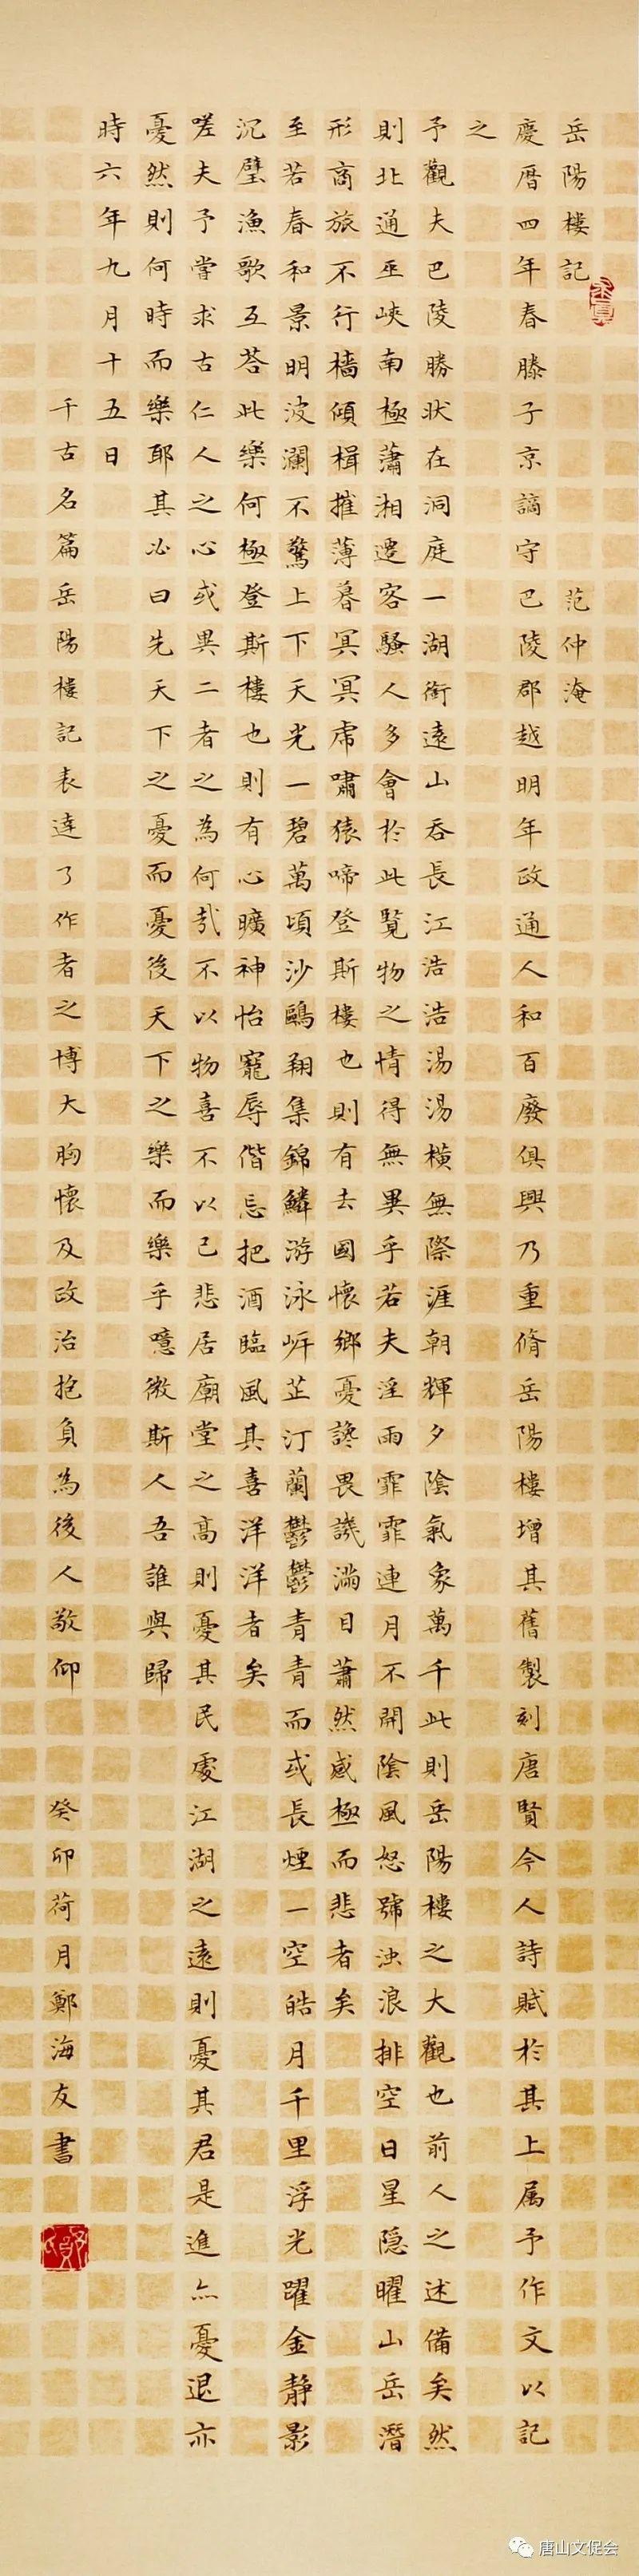 岳陽樓記 范仲淹
慶曆四年春滕子京謫守巴陵郡越明年政通人和百廢俱興乃重脩岳陽樓增其舊製刻唐賢今人詩賦於其上属予作文以記
之
予觀夫巴陵勝狀在洞庭一湖銜遠山吞長江浩浩湯湯橫無際涯朝輝夕陰氣象萬千此則岳陽樓之大觀也前人之述備矣然
則北通巫峽南極瀟湘遷客騷人多會於此覽物之情得無異乎若夫淫雨霏霏連月不開陰風怒號浊浪排空日星隱曜山岳潛
形商旅不行檣傾楫摧薄暮冥冥虎嘯猿啼登斯樓也則有去國懷鄉憂讒畏譏滿目蕭然感極而悲者矣
至若春和景明波瀾不驚上下天光一碧萬頃沙鷗翔集錦鱗游泳岸芷汀蘭鬱鬱青青而或長煙一空皓月千里浮光躍金静影
沉璧漁歌互荅此樂何極登斯樓也則有心曠神怡寵辱偕忘把酒臨風其喜洋洋者矣
嗟夫予嘗求古仁人之心或異二者之為何哉不以物喜不以己悲居廟堂之高則憂其民處江湖之遠則憂其君是進亦憂退亦
憂然則何時而樂耶其必曰先天下之憂而憂後天下之樂而樂乎噫微斯人吾誰與歸
時六年九月十五日
千古名篇岳陽樓記表達了作者之博大胸懷及政治抱負為後人敬仰 癸卯荷月鄭海友書
唐山文促会